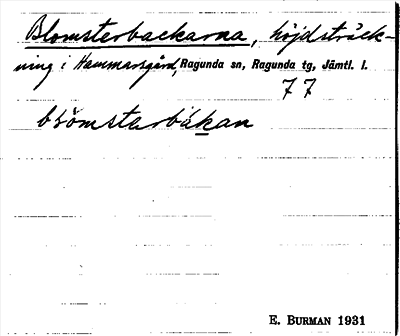 Blomsterbackarna, höjdsträck-
ning i Hammarsgård, Ragunda sn, Ragunda tg, Jämtl. l.
77
blömsterbákan
E. BURMAN 1931